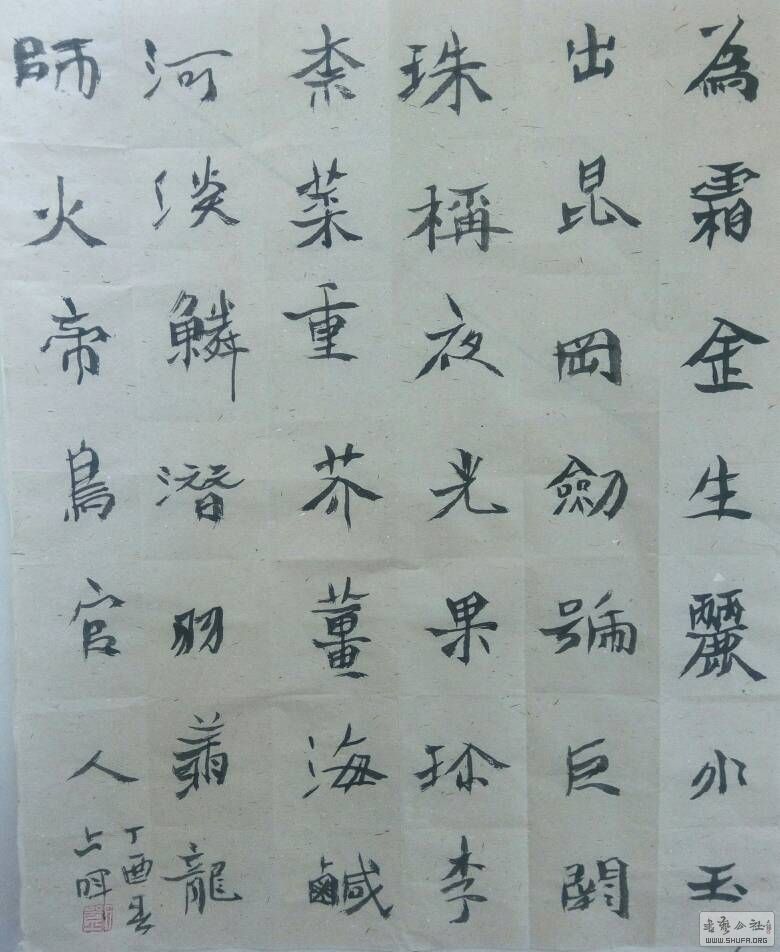 為霜金生麗水玉
出昆岡劍號巨闕
珠稱夜光果珍李
柰菜重芥薑海鹹
河淡鱗潛羽翔龍
師火帝鳥官人
丁酉
书艺公社
WWW.SHUFA.ORG